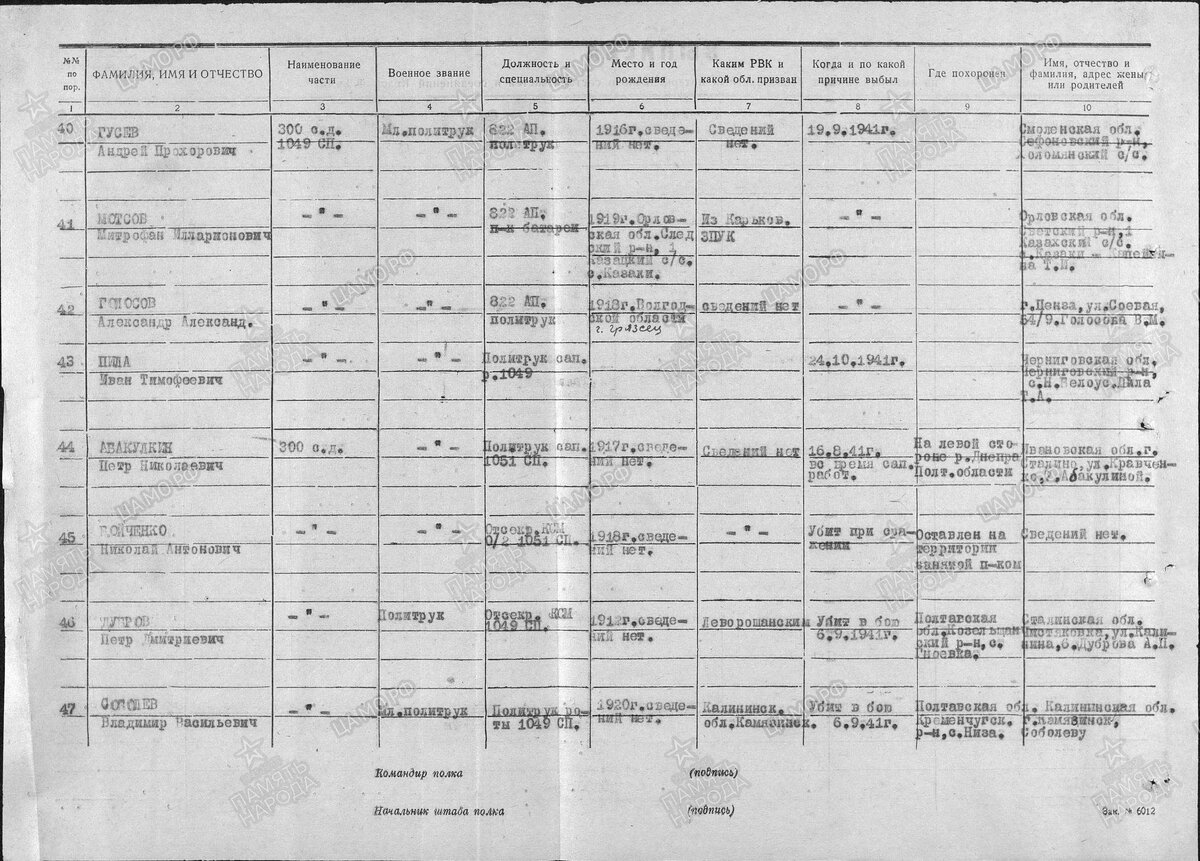 №№ по пор.
ФАМИЛИЯ, ИМЯ И ОТЧЕСТВО
Наименование части
Военное звание
Должность и специальность
Место и год рождения
Каким РВК и какой обл. призван
Когда и по какой причине выбыл
Где похоронен
Имя, отчество и фамилия, адрес жены или родителей
1 2 3 4 5 6 7 8 9 10
40
ГУСЕВ
Андрей Прохорович
300 с.д.
1049 СП.
Мл.политрук
822 АП.
политрук
1916г.сведе-
ний нет.
Сведений
нет.
19.9.1941г.
Смоленская обл.
Сефоновский р-н,
Холомянский с/с.
41
МОТСОВ
Митрофан Илларионович
- " -
- " -
822 АП.
н-к батареи
1919г.Орлов-
ская обл.След
ский р-н, 1
Казацкий с/с.
с.Казаки.
Из Карьков.
ЗПУК
- " -
Орловская обл.
Светский р-н,1
Казахский с/с.
на Т.И.
42
ГОЛОСОВ
Александр Александ.
- " -
- " -
822 АП.
политрук
1918г.Волгод-
ской области
г. Грязсец
сведений нет
- " -
г.Пенза,ул.Соевая,
54/9.Голосова В.М.
43
ПИЛА
Иван Тимофеевич
- " -
- " -
Политрук сап.
р.1049
24.10.1941г.
Черниговская обл.
Черниговский р-н,
с.Н.Белоус.Пила
Т.А.
44
АБАКУЛКИН
Петр Николаевич
300 с.д.
- " -
Политрук сап.
1051 СП.
1917г.сведе-
ний нет.
Сведений нет
16.8.41г.
во время сап.
работ.
На левой сто-
роне р.Днепра
Полт.области
Ивановская обл.г.
Сталино,ул.Кравчен-
45
БОЙЧЕНКО
Николай Антонович
- " -
- " -
Отсекр.КСМ
0/2 1051 СП.
1918г.сведе-
ний нет.
- " -
Убит при сра-
жении
Оставлен на
территории
занятой п-ком
Сведений нет.
46
ДУБРОВ
Петр Дмитриевич
- " -
Политрук
Отсекр. КСМ
1049 СП.
1912г.сведе-
ний нет.
Леворошанским
Убит в бою
6.9.1941г.
Полтавская
обл.Козельщан
ский р-н,с.
Гноевка.
Сталинская обл.
Чистяковка,ул.Кали-
нина,6.Дуброва А.П.
47
СОБОЛЕВ
Владимир Васильевич
- " -
Мл.политрук
Политрук ро-
ты 1049 СП.
1920г.сведе-
ний нет.
Калининск.
обл.Камяринск.
Убит в бою
6.9.41г.
Полтавская обл.
Кременчугск.
р-н,с.Низа.
Калининская обл.
г.Камязинск,
Соболеву
Командир полка
(подпись)
Начальник штаба полка
(подпись)
Зак. № 6012
ЦАМО.РФ
ПАМЯТЬ НАРОДА